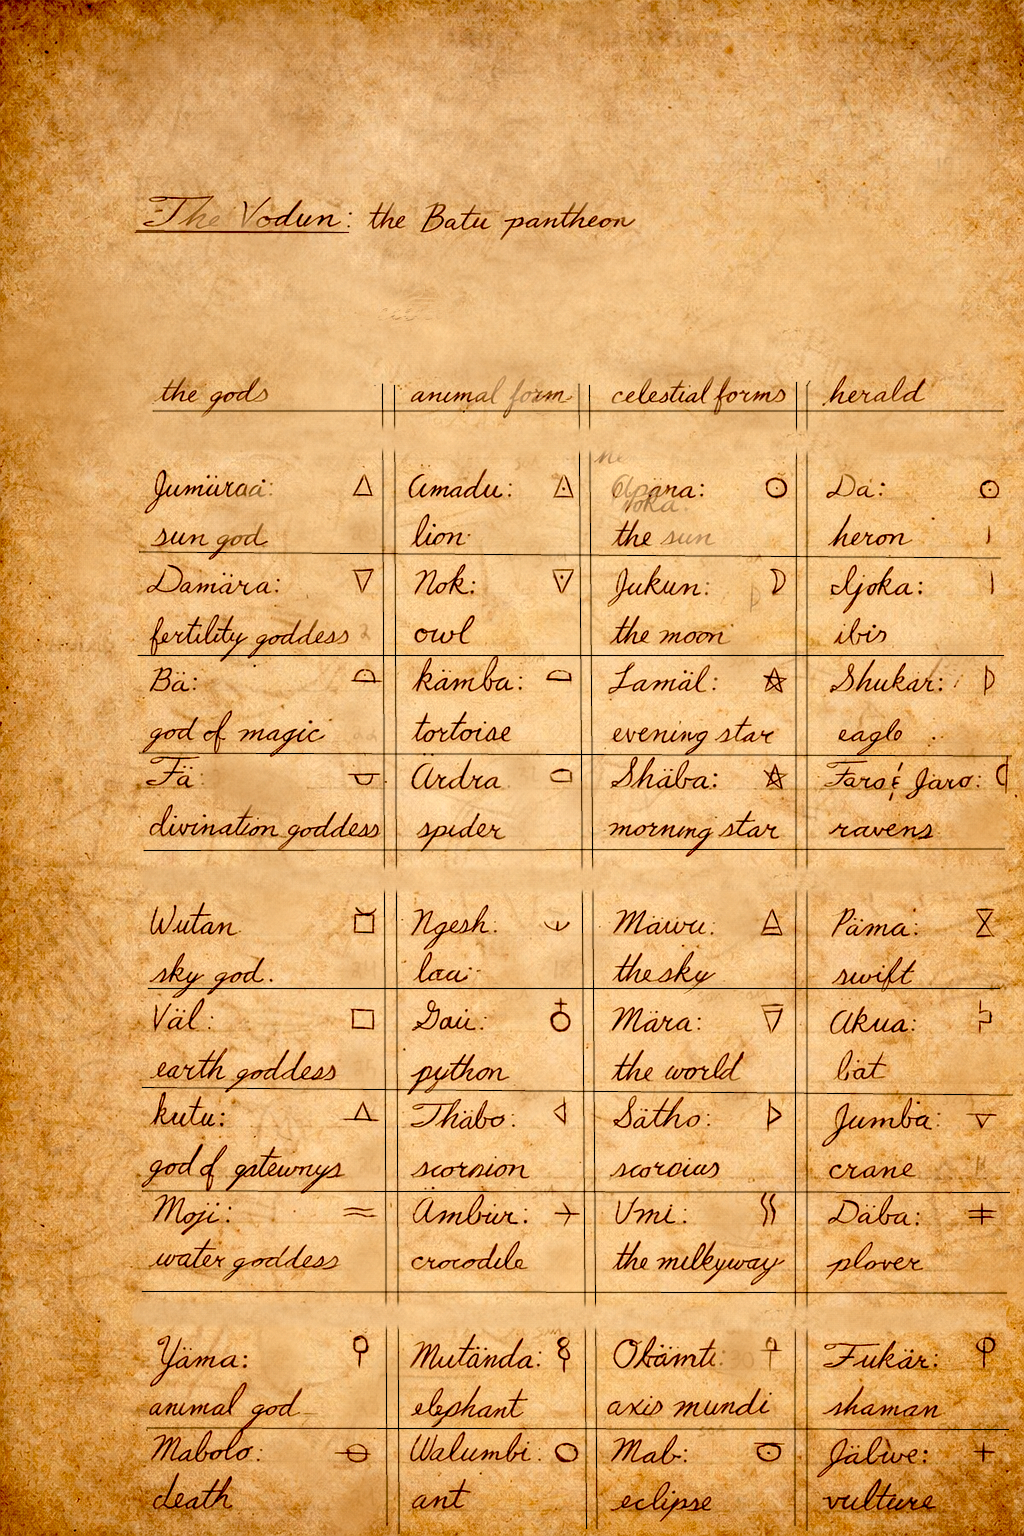 The Vodun: the Batu pantheon
the gods animal form celestial forms herald
Jumüraa: Ämadu: Apara: Da:
sun god lion the sun heron
Damära: Nok: Jukun: Ijoka:
fertility goddess owl the moon ibis
Bä: kämba: Lamäl: Shukar:
god of magic tortoise evening star eaglo
Fä: Ardra Shäba: Faro & Jaro:
divination goddess spider morning star ravens
Wutan Ngesh: Mawu: Päma:
sky god. thesky swift
Väl: Mära: Akua:
earth goddess python the world bat
kutu: Thäbo: Sätho: Jumba:
god of scorpion crane
Moji: Ämbur: Umi: Däba:
water goddess crocodile the milkyway plover
Yäma: Mutända: Fukär:
animal god elephant axis mundi shaman
Mabolo: Walumbi: Mab:
death ant eclipse vulture